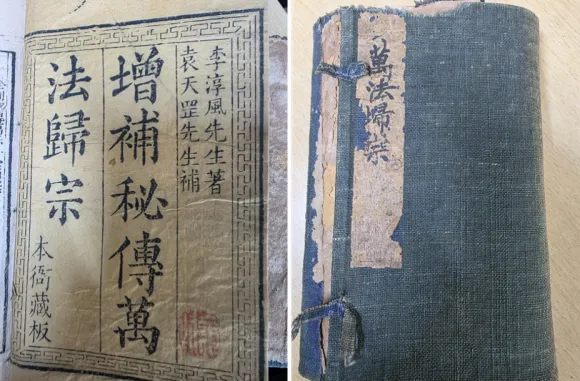 李淳風先生著
袁天罡先生補
增補秘傳萬
法歸宗
本衙藏板
萬法歸宗